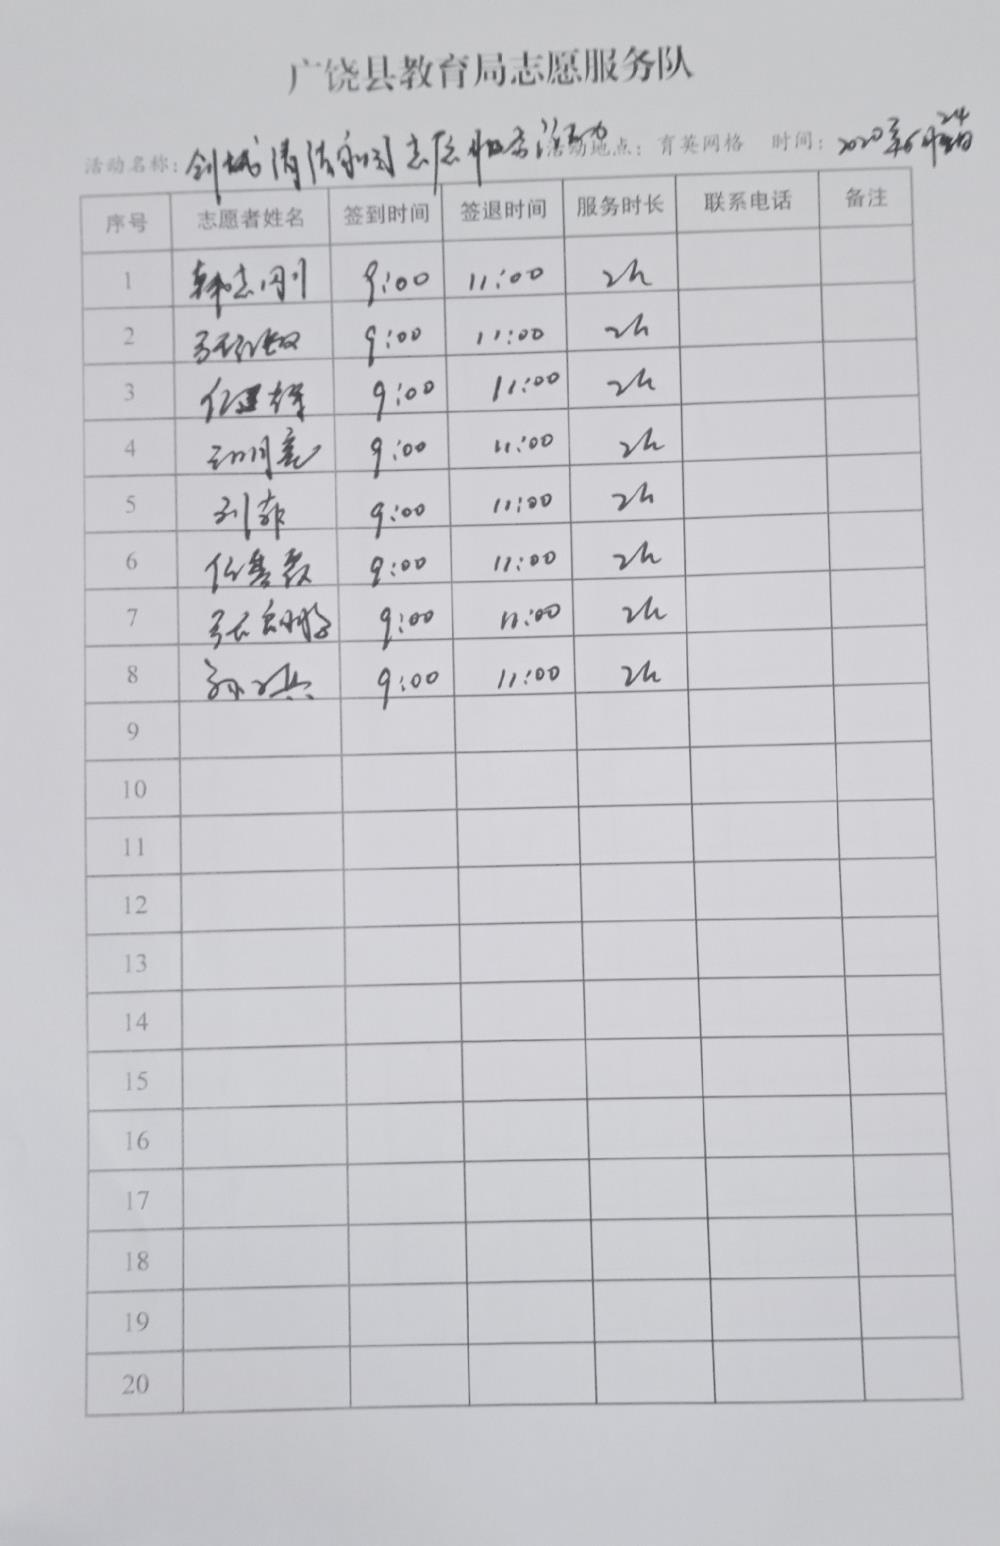 广饶县教育局志愿服务队
活动名称：创城清洁家园志愿服务活动 活动地点：育英网格 时间：2020年6月24日
序号 志愿者姓名 签到时间 签退时间 服务时长 联系电话 备注
1 韩志刚 9:00 11:00 2h
2 9:00 11:00 2h
3 任建辉 9:00 11:00 2h
4 9:00 11:00 2h
5 刘菲 9:00 11:00 2h
6 9:00 11:00 2h
7 9:00 11:00 2h
8 9:00 11:00 2h
9
10
11
12
13
14
15
16
17
18
19
20